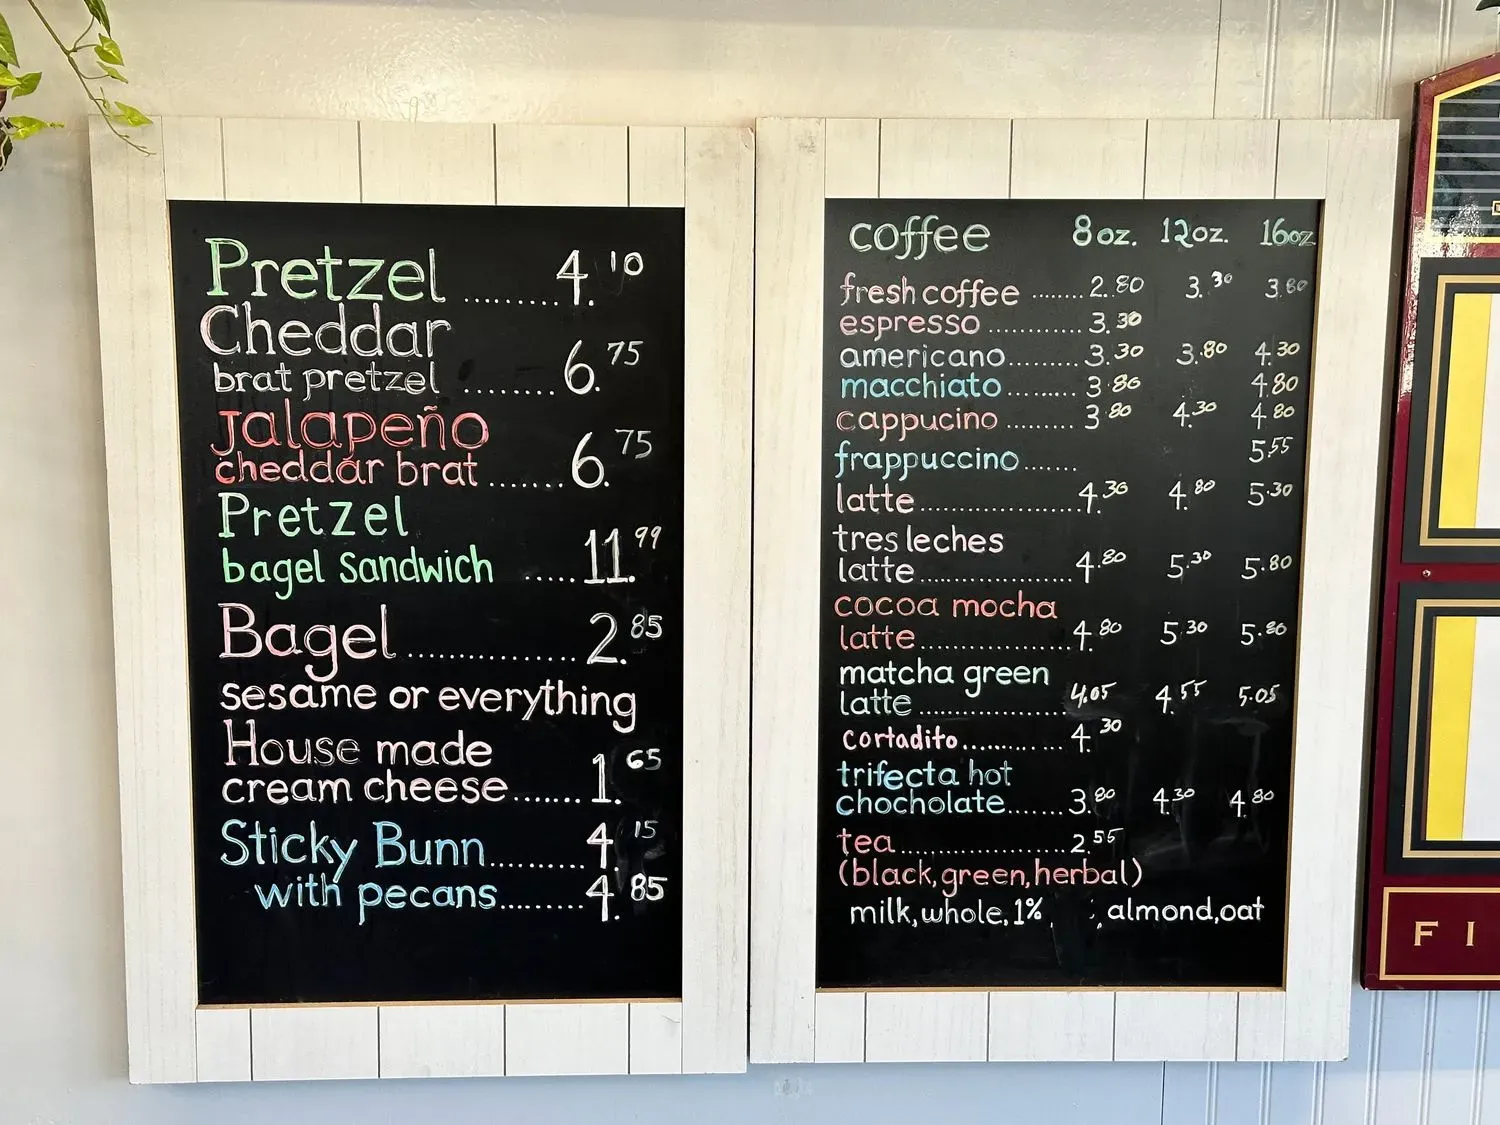 Pretzel ......... 4.10
Cheddar
brat pretzel ........ 6.75
Jalapeño
cheddar brat ....... 6.75
Pretzel
bagel sandwich ..... 11.99
Bagel ................ 2.85
sesame or everything
House made
cream cheese ....... 1.65
Sticky Bunn .......... 4.15
with pecans ......... 4.85
coffee 8oz. 12oz. 16oz
fresh coffee ....... 2.80 3.30 3.80
espresso ............ 3.30
americano ......... 3.30 3.80 4.30
macchiato ......... 3.80 4.80
cappucino ......... 3.80 4.30 4.80
frappuccino ....... 5.55
latte .................... 4.30 4.80 5.30
tres leches
latte .................... 4.80 5.30 5.80
cocoa mocha
latte .................... 4.80 5.30 5.80
matcha green
latte .................... 4.05 4.55 5.05
cortadito ............. 4.30
trifecta hot
chocholate ....... 3.80 4.30 4.80
tea ...................... 2.55
(black, green, herbal)
milk, whole, 1%, , almond, oat
FI